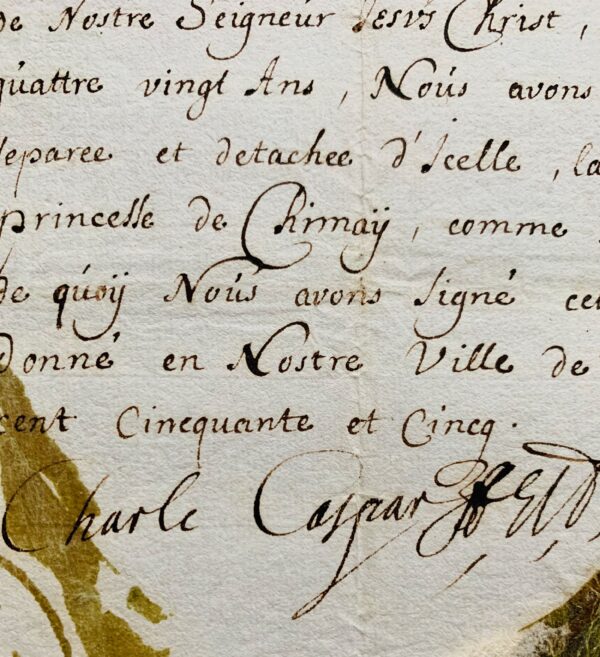 De Nostre Seigneur Jesus Christ,
quattre vingt Ans, Noús avons
separee et detachee d'Icelle, la
princesse de Chimaÿ, comme
de quoÿ Noús avons signé ce
donné en Nostre Ville de
cent Cincquante et Cincq.
Charle Caspar